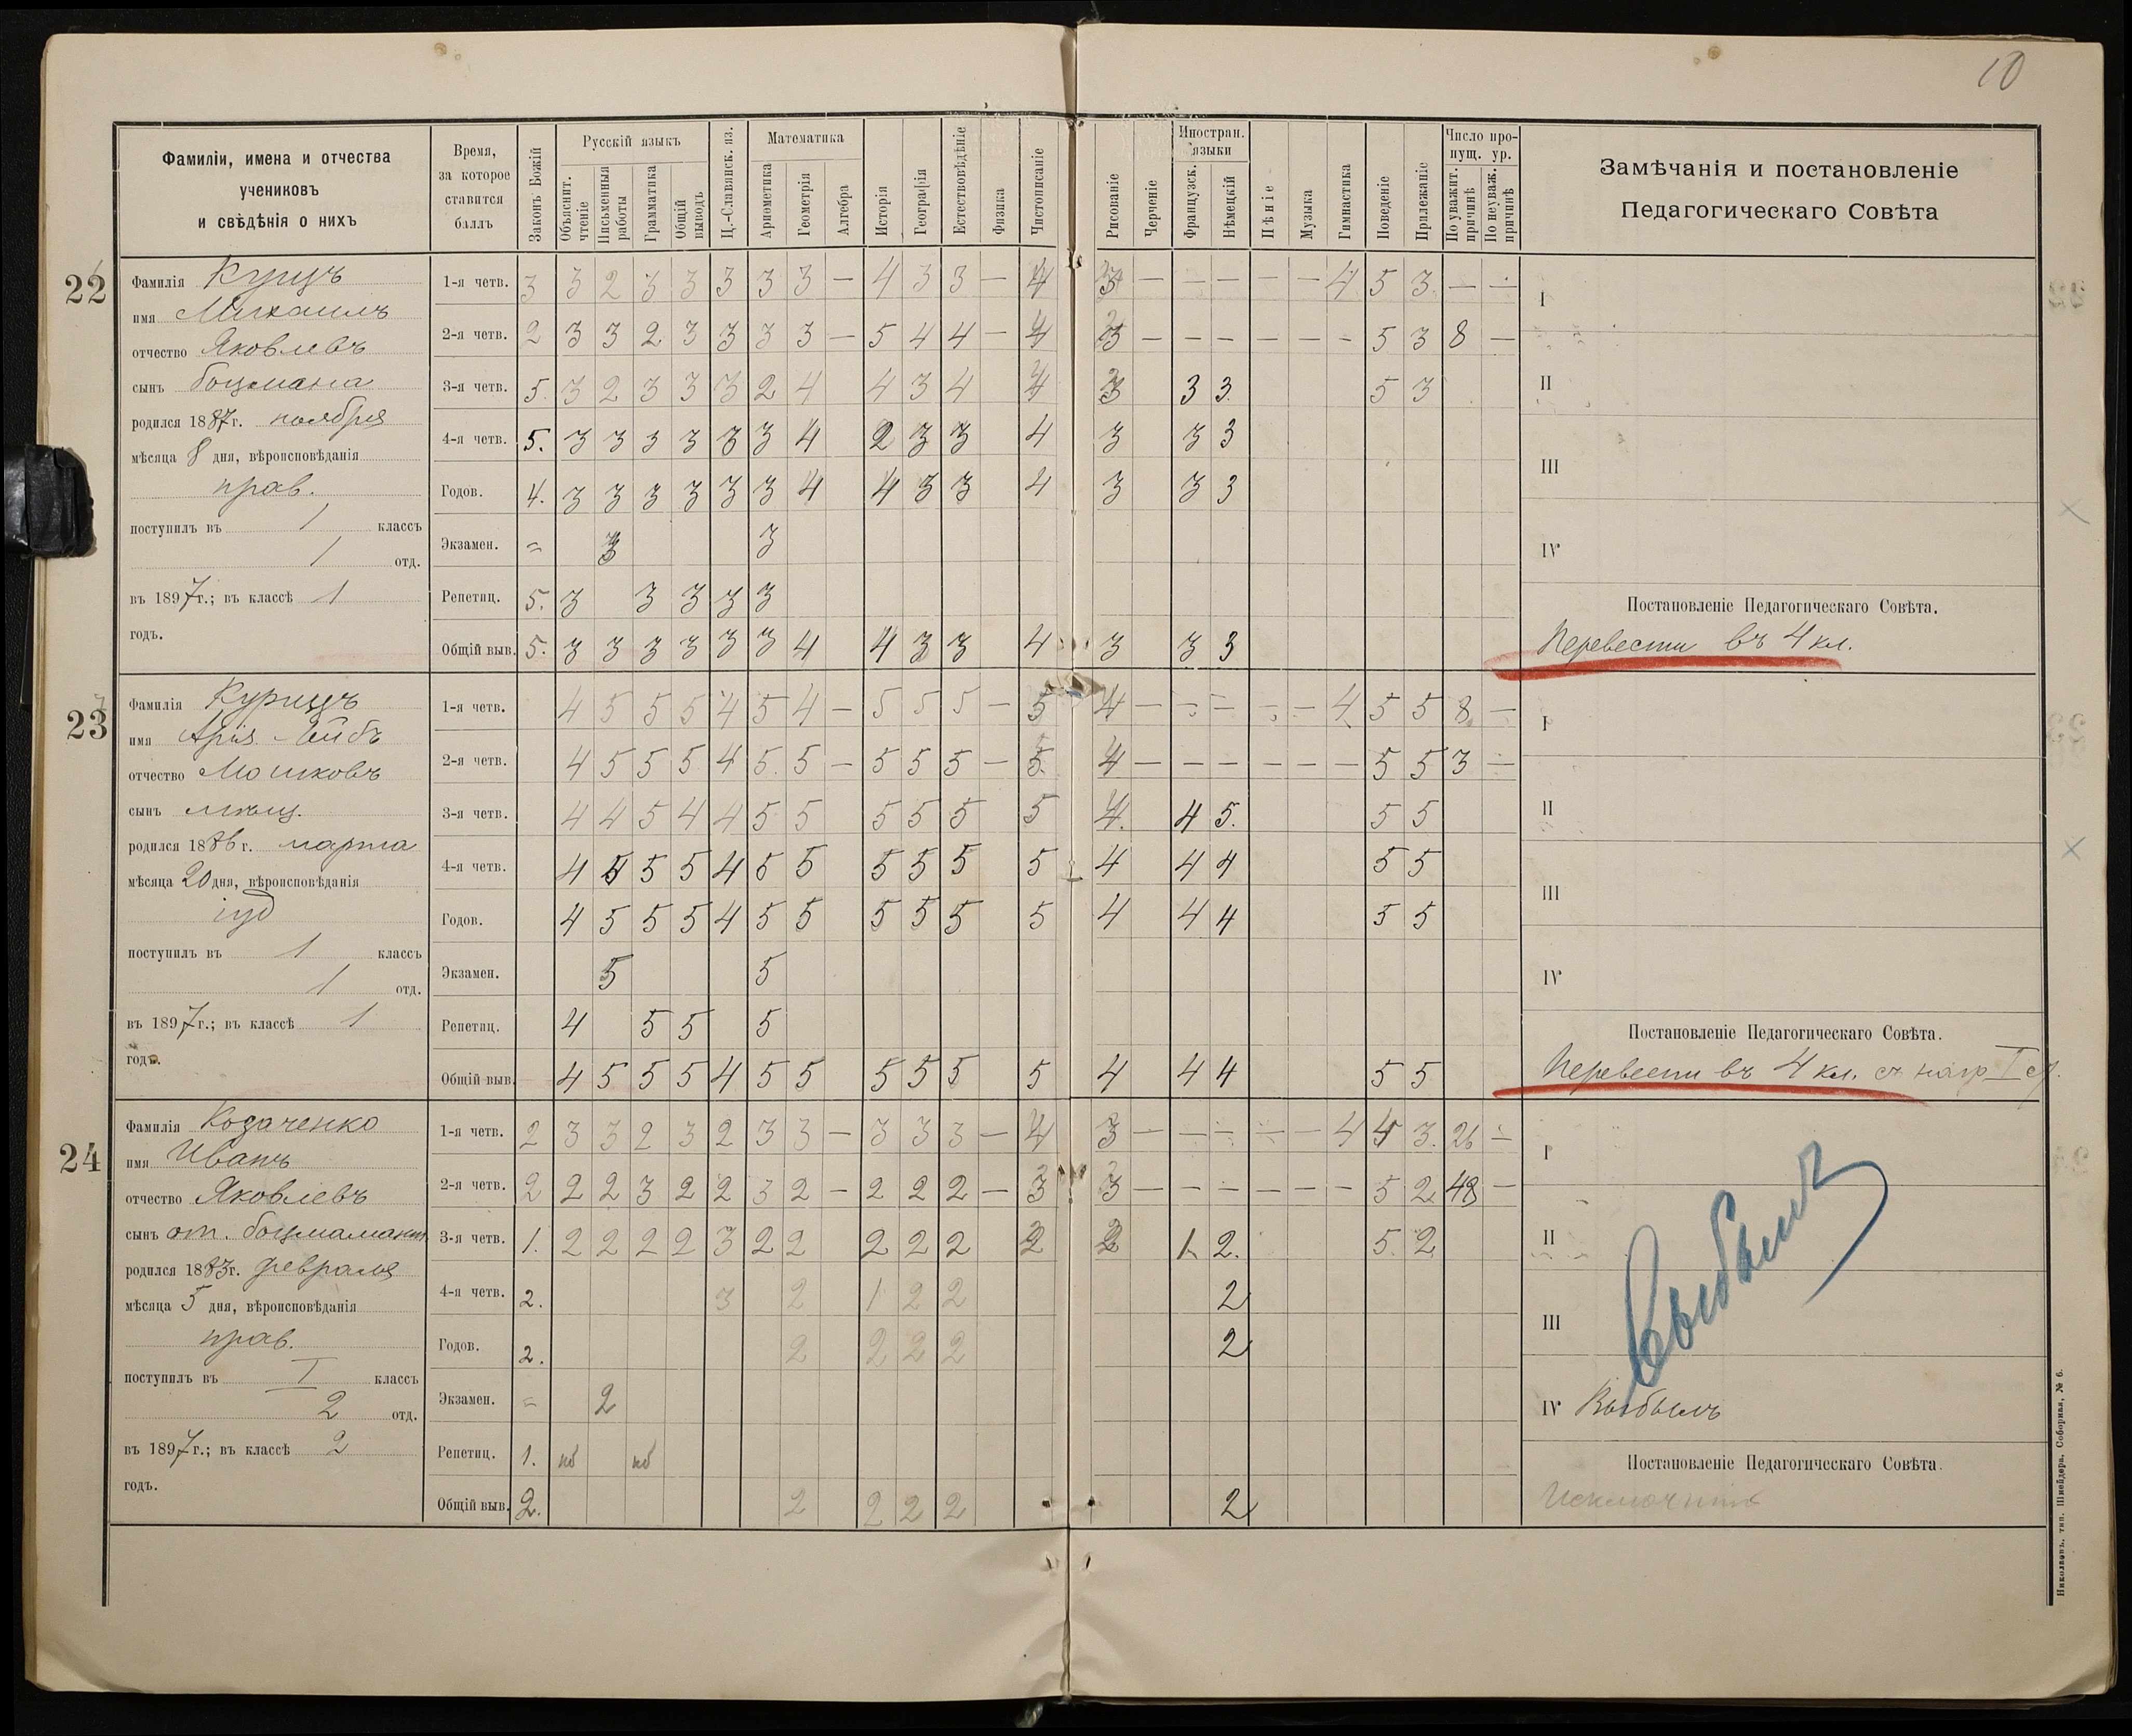 10
Фамиліи, имена и отчества
учениковъ
и свѣдѣнія о нихъ
Время,
за которое
ставится
баллъ
Законъ Божій
Русскій языкъ
Объяснит. чтеніе
Письменныя работы
Грамматика
Общій выводъ
Ц.-Славянск. яз.
Математика
Ариѳметика
Геометрія
Алгебра
Исторія
Географія
Естествовѣдѣніе
Физика
Чистописаніе
Рисованіе
Черченіе
Иностран. языки
Французск.
Нѣмецкій
Пѣніе
Музыка
Гимнастика
Поведеніе
Прилежаніе
Число пропущ. ур.
По уважит. причинѣ
По неуваж. причинѣ
Замѣчанія и постановленіе
Педагогическаго Совѣта
22
Фамилія Куцъ
имя Михаилъ
отчество Яковлевъ
сынъ боцмана
родился 1887г. ноября
мѣсяца 8 дня, вѣроисповѣданія
прав.
поступилъ въ 1 классъ
1 отд.
въ 1897г.; въ классѣ 1
годъ.
1-я четв. 3 3 2 3 3 3 3 3 — 4 3 3 — 4 3 — — — — — 4 5 3 — —
2-я четв. 2 3 3 2 3 3 3 3 — 5 4 4 — 4 3 — — — — — — 5 3 8 —
3-я четв. 5. 3 2 3 3 3 2 4 4 3 4 4 3 3 3. 5 3
4-я четв. 5. 3 3 3 3 3 3 4 2 3 3 4 3 3 3
Годов. 4. 3 3 3 3 3 3 4 4 3 3 4 3 3 3
Экзамен. = 3 3
Репетиц. 5. 3 3 3 3 3
Общій выв. 5. 3 3 3 3 3 3 4 4 3 3 4 3 3 3
I
II
III
IV
Постановленіе Педагогическаго Совѣта.
Перевести въ 4 кл.
23
Фамилія
имя Арія-Лейбъ
отчество Мошковъ
сынъ мѣщ.
родился 1886г. марта
мѣсяца 20 дня, вѣроисповѣданія
іуд
поступилъ въ 1 классъ
1 отд.
въ 1897г.; въ классѣ 1
годъ.
1-я четв. 4 5 5 5 4 5 4 — 5 5 5 — 5 4 — — — — — 4 5 5 8 —
2-я четв. 4 5 5 5 4 5 5 — 5 5 5 — 5. 4 — — — — — — 5 5 3 —
3-я четв. 4 4 5 4 4 5 5 5 5 5 5 4. 4 5. 5 5
4-я четв. 4 5 5 5 4 5 5 5 5 5 5 4 4 4 5 5
Годов. 4 5 5 5 4 5 5 5 5 5 5 4 4 4 5 5
Экзамен. 5 5
Репетиц. 4 5 5 5
Общій выв. 4 5 5 5 4 5 5 5 5 5 5 4 4 4 5 5
I
II
III
IV
Постановленіе Педагогическаго Совѣта.
Перевести въ 4 кл. съ нагр I ст.
24
Фамилія Козаченко
имя Иванъ
отчество Яковлевъ
сынъ от.
родился 1883г. февраля
мѣсяца 5 дня, вѣроисповѣданія
прав.
поступилъ въ I классъ
2 отд.
въ 1897г.; въ классѣ 2
годъ.
1-я четв. 2 3 3 2 3 2 3 3 — 3 3 3 — 4 3 — — — — — 4 4 3. 26 —
2-я четв. 2 2 2 3 2 2 3 2 — 2 2 2 — 3 3 — — — — — — 5 2 48 —
3-я четв. 1. 2 2 2 2 3 2 2 2 2 2 2 2 1. 2. 5. 2
4-я четв. 2. 3 2 1 2 2 2
Годов. 2. 2 2 2 2 2
Экзамен. = 2
Репетиц. 1. нб нб
Общій выв. 2. 2 2 2 2 2
I
II
III
Выбылъ
IV Выбылъ
Постановленіе Педагогическаго Совѣта.
Исключить
Николаевъ, тип. Шнейдера, Соборная, № 6.